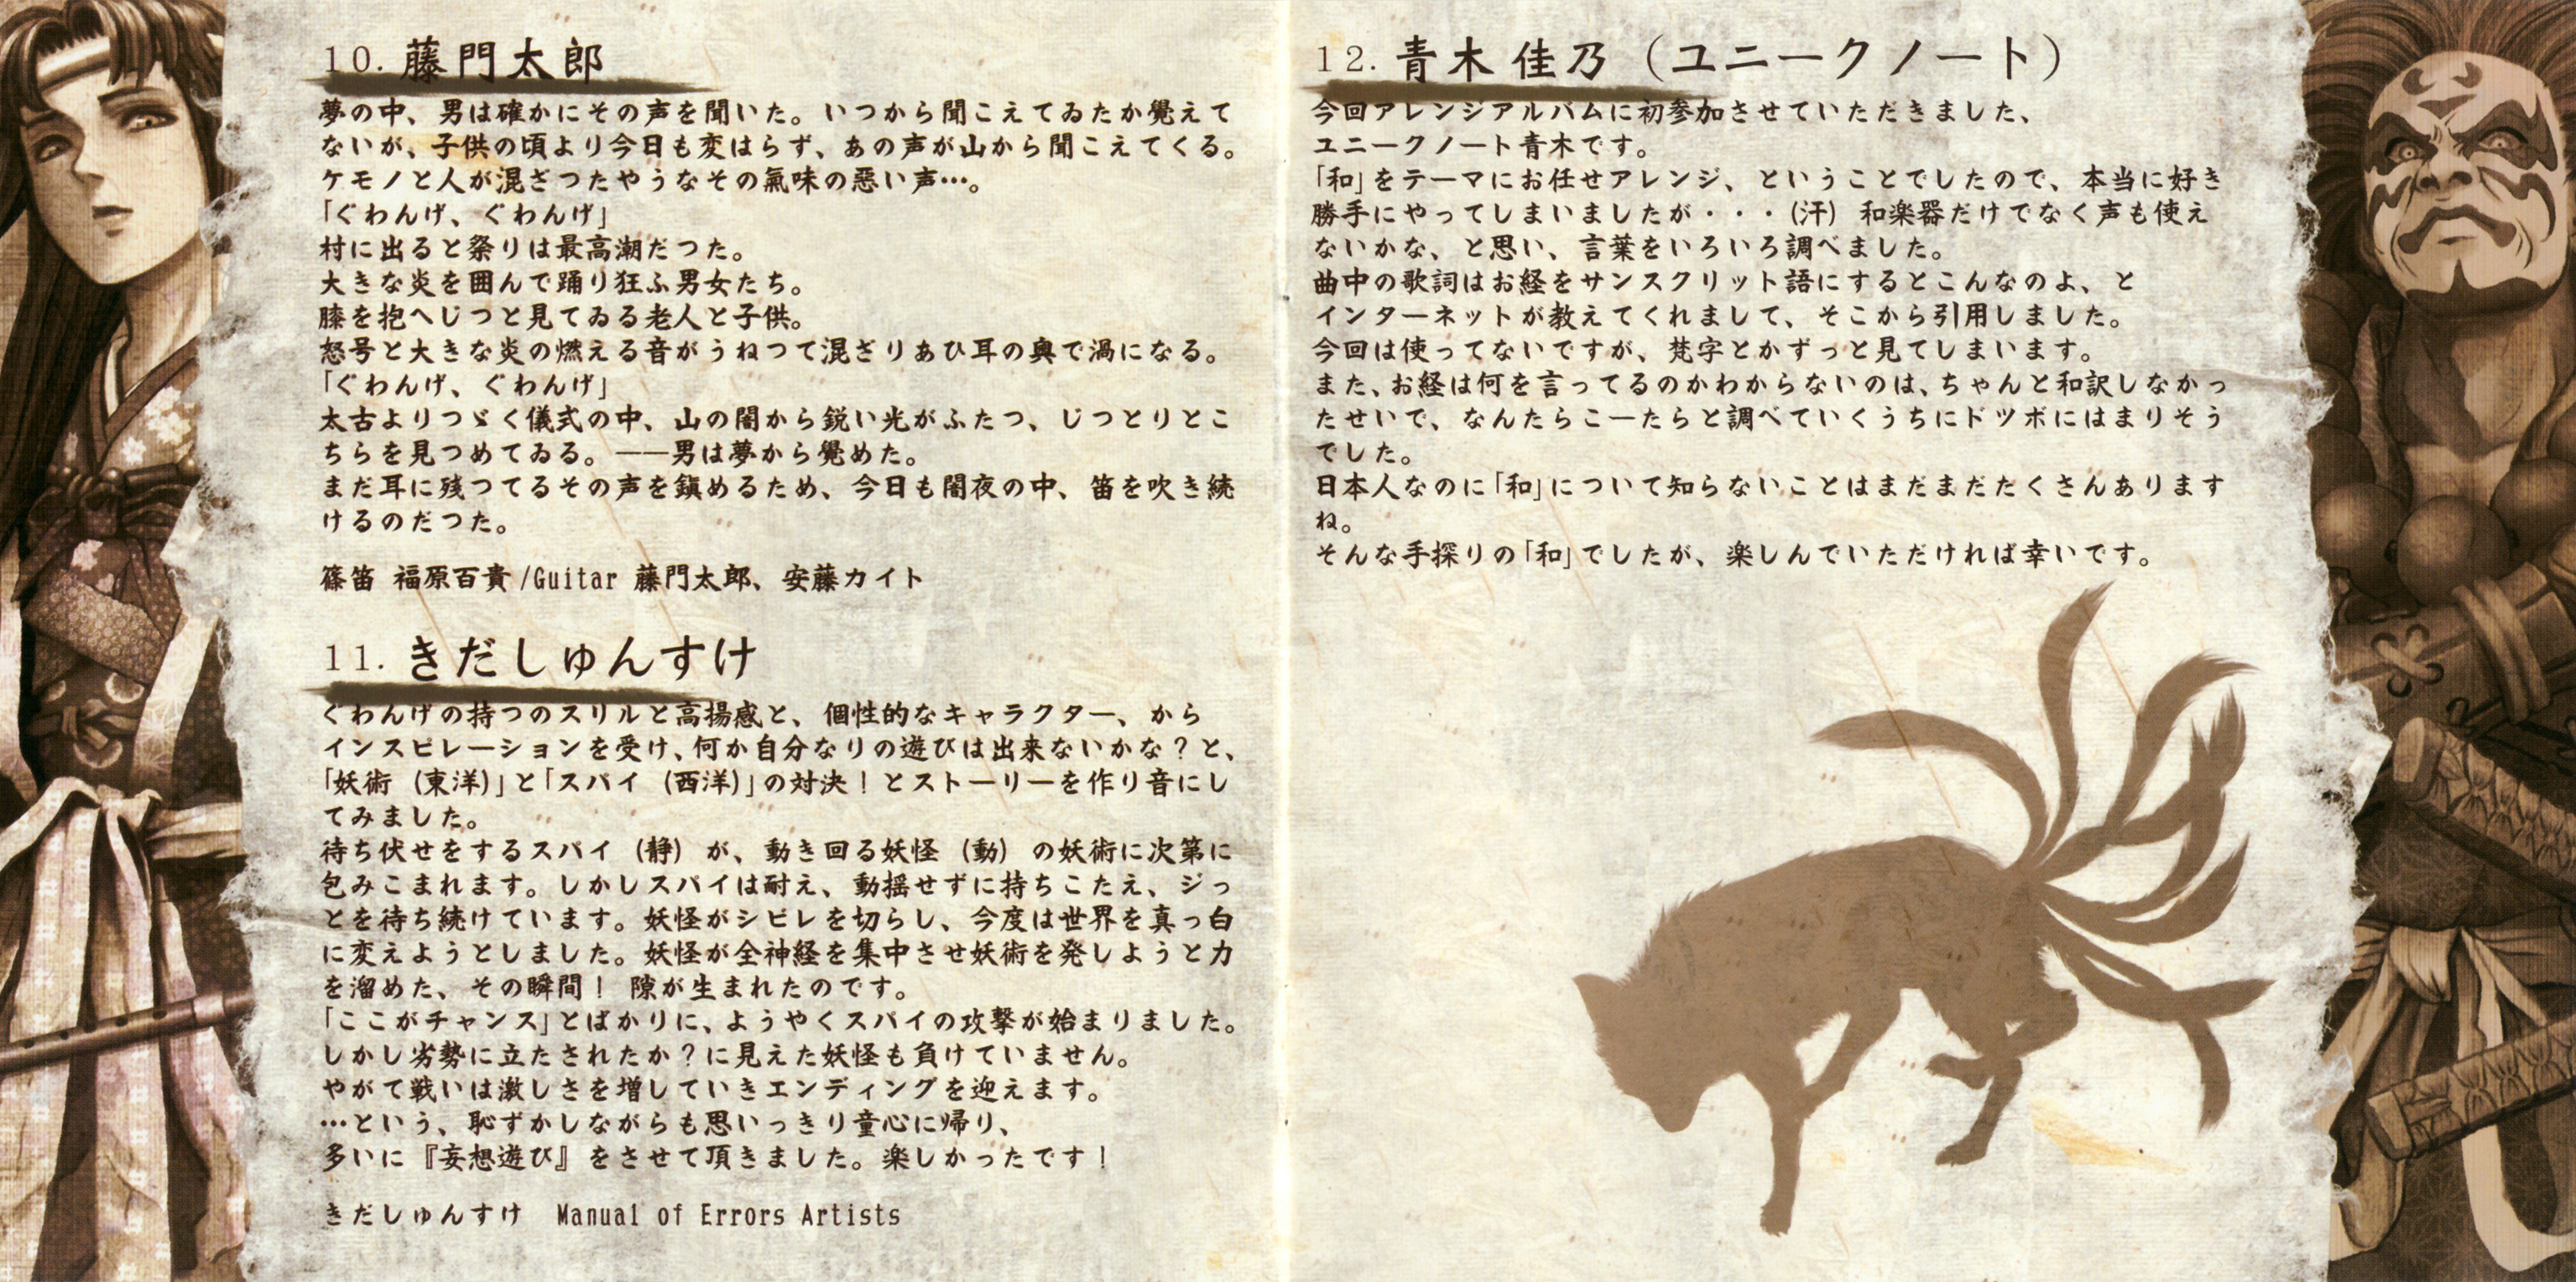 10. 藤門太郎
夢の中、男は確かにその声を聞いた。いつから聞こえてゐたか覺えて
ないが、子供の頃より今日も変はらず、あの声が山から聞こえてくる。
ケモノと人が混ざつたやうなその氣味の悪い声…。
「ぐわんげ、ぐわんげ」
村に出ると祭りは最高潮だつた。
大きな炎を囲んで踊り狂ふ男女たち。
膝を抱へじつと見てゐる老人と子供。
怒号と大きな炎の燃える音がうねつて混ざりあひ耳の奥で渦になる。
「ぐわんげ、ぐわんげ」
太古よりつゞく儀式の中、山の闇から鋭い光がふたつ、じつとりとこ
ちらを見つめてゐる。――男は夢から覺めた。
まだ耳に残つてるその声を鎮めるため、今日も闇夜の中、笛を吹き続
けるのだつた。
篠笛 福原百貴/Guitar 藤門太郎、安藤カイト
11. きだしゅんすけ
ぐわんげの持つのスリルと高揚感と、個性的なキャラクター、から
インスピレーションを受け、何か自分なりの遊びは出来ないかな？と、
「妖術（東洋）」と「スパイ（西洋）」の対決！とストーリーを作り音にし
てみました。
待ち伏せをするスパイ（静）が、動き回る妖怪（動）の妖術に次第に
包みこまれます。しかしスパイは耐え、動揺せずに持ちこたえ、ジっ
とを待ち続けています。妖怪がシビレを切らし、今度は世界を真っ白
に変えようとしました。妖怪が全神経を集中させ妖術を発しようと力
を溜めた、その瞬間！ 隙が生まれたのです。
「ここがチャンス」とばかりに、ようやくスパイの攻撃が始まりました。
しかし劣勢に立たされたか？に見えた妖怪も負けていません。
やがて戦いは激しさを増していきエンディングを迎えます。
…という、恥ずかしながらも思いっきり童心に帰り、
多いに『妄想遊び』をさせて頂きました。楽しかったです！
きだしゅんすけ　Manual of Errors Artists
12. 青木 佳乃（ユニークノート）
今回アレンジアルバムに初参加させていただきました、
ユニークノート青木です。
「和」をテーマにお任せアレンジ、ということでしたので、本当に好き
勝手にやってしまいましたが・・・（汗） 和楽器だけでなく声も使え
ないかな、と思い、言葉をいろいろ調べました。
曲中の歌詞はお経をサンスクリット語にするとこんなのよ、と
インターネットが教えてくれまして、そこから引用しました。
今回は使ってないですが、梵字とかずっと見てしまいます。
また、お経は何を言ってるのかわからないのは、ちゃんと和訳しなかっ
たせいで、なんたらこーたらと調べていくうちにドツボにはまりそう
でした。
日本人なのに「和」について知らないことはまだまだたくさんあります
ね。
そんな手探りの「和」でしたが、楽しんでいただければ幸いです。